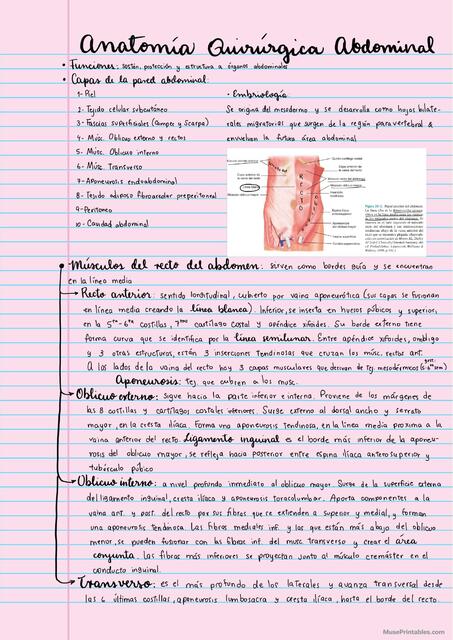 Anatomía Quirúrgica Abdominal
• Funciones: sostén, protección y estructura a órganos abdominales
• Capas de la pared abdominal:
1- Piel
2- Tejido celular subcutáneo
3- Fascias superficiales (Camper y Scarpa)
4- Músc. Oblicuo externo y rectos
5- Músc. Oblicuo interno
6- Músc. Transverso
7- Aponeurosis endoabdominal
8- Tejido adiposo fibroareolar preperitoneal
9- Peritoneo
10- Cavidad abdominal
• Embriología
Se origina del mesodermo y se desarrolla como hojas bilate-
rales migratorios que surgen de la región paravertebral &
envuelven la futura área abdominal
Recto
• Músculos del recto del abdomen: sirven como bordes guía y se encuentran
en la línea media
Recto anterior: sentido longitudinal, cubierto por vaina aponeurótica (sus capas se fusionan
en línea media creando la línea blanca). Inferior, se inserta en huesos púbicos y superior,
en la 5ta-6ta costillas, 7mo cartílago costal y apéndice xifoides. Su borde externo tiene
forma curva que se identifica por la línea semilunar. Entre apéndice xifoides, ombligo
y 3 otras estructuras, están 3 inserciones tendinosas que cruzan los músc. rectos ant.
A los lados de la vaina del recto hay 3 capas musculares que derivan de tej. mesodérmicos
Aponeurosis: tej. que cubren a los musc.
Oblicuo externo: sigue hacia la parte inferior e interna. Proviene de los márgenes de
las 8 costillas y cartílagos costales inferiores. Surge externo al dorsal ancho y serrato
mayor, en la cresta ilíaca. Forma una aponeurosis tendinosa, en la línea media proxima a la
vaina anterior del recto. Ligamento inguinal es el borde más inferior de la aponeu-
rosis del oblicuo mayor, se refleja hacia posterior entre espina ilíaca anterosuperior y
tubérculo púbico
Oblicuo interno: a nivel profundo inmediato al oblicuo mayor. Surge de la superficie externa
del ligamento inguinal, cresta ilíaca y aponeurosis toracolumbar. Aporta componentes a la
vaina ant. y post. del recto por sus fibras que se extienden a superior y medial, y forman
una aponeurosis tendinosa. Las fibras mediales inf. y las que están más abajo del oblicuo
menor, se pueden fusionar con las fibras inf. del musc transverso y crear el área
conjunta. Las fibras más inferiores se proyectan junto al músculo cremáster en el
conducto inguinal.
Transverso: es el más profundo de los laterales y avanza transversal desde
las 6 últimas costillas, aponeurosis lumbosacra y cresta ilíaca, hasta el borde del recto.
MusePrintables.com